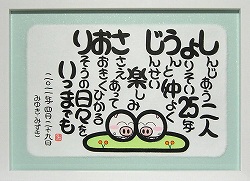 しんじあう二人
よりそい25年
うんと仲よく
じんせい楽しみ
ささえあって
おおきくひろがる
りそうの日々を
いつまでも
二〇一一年四月二十九日